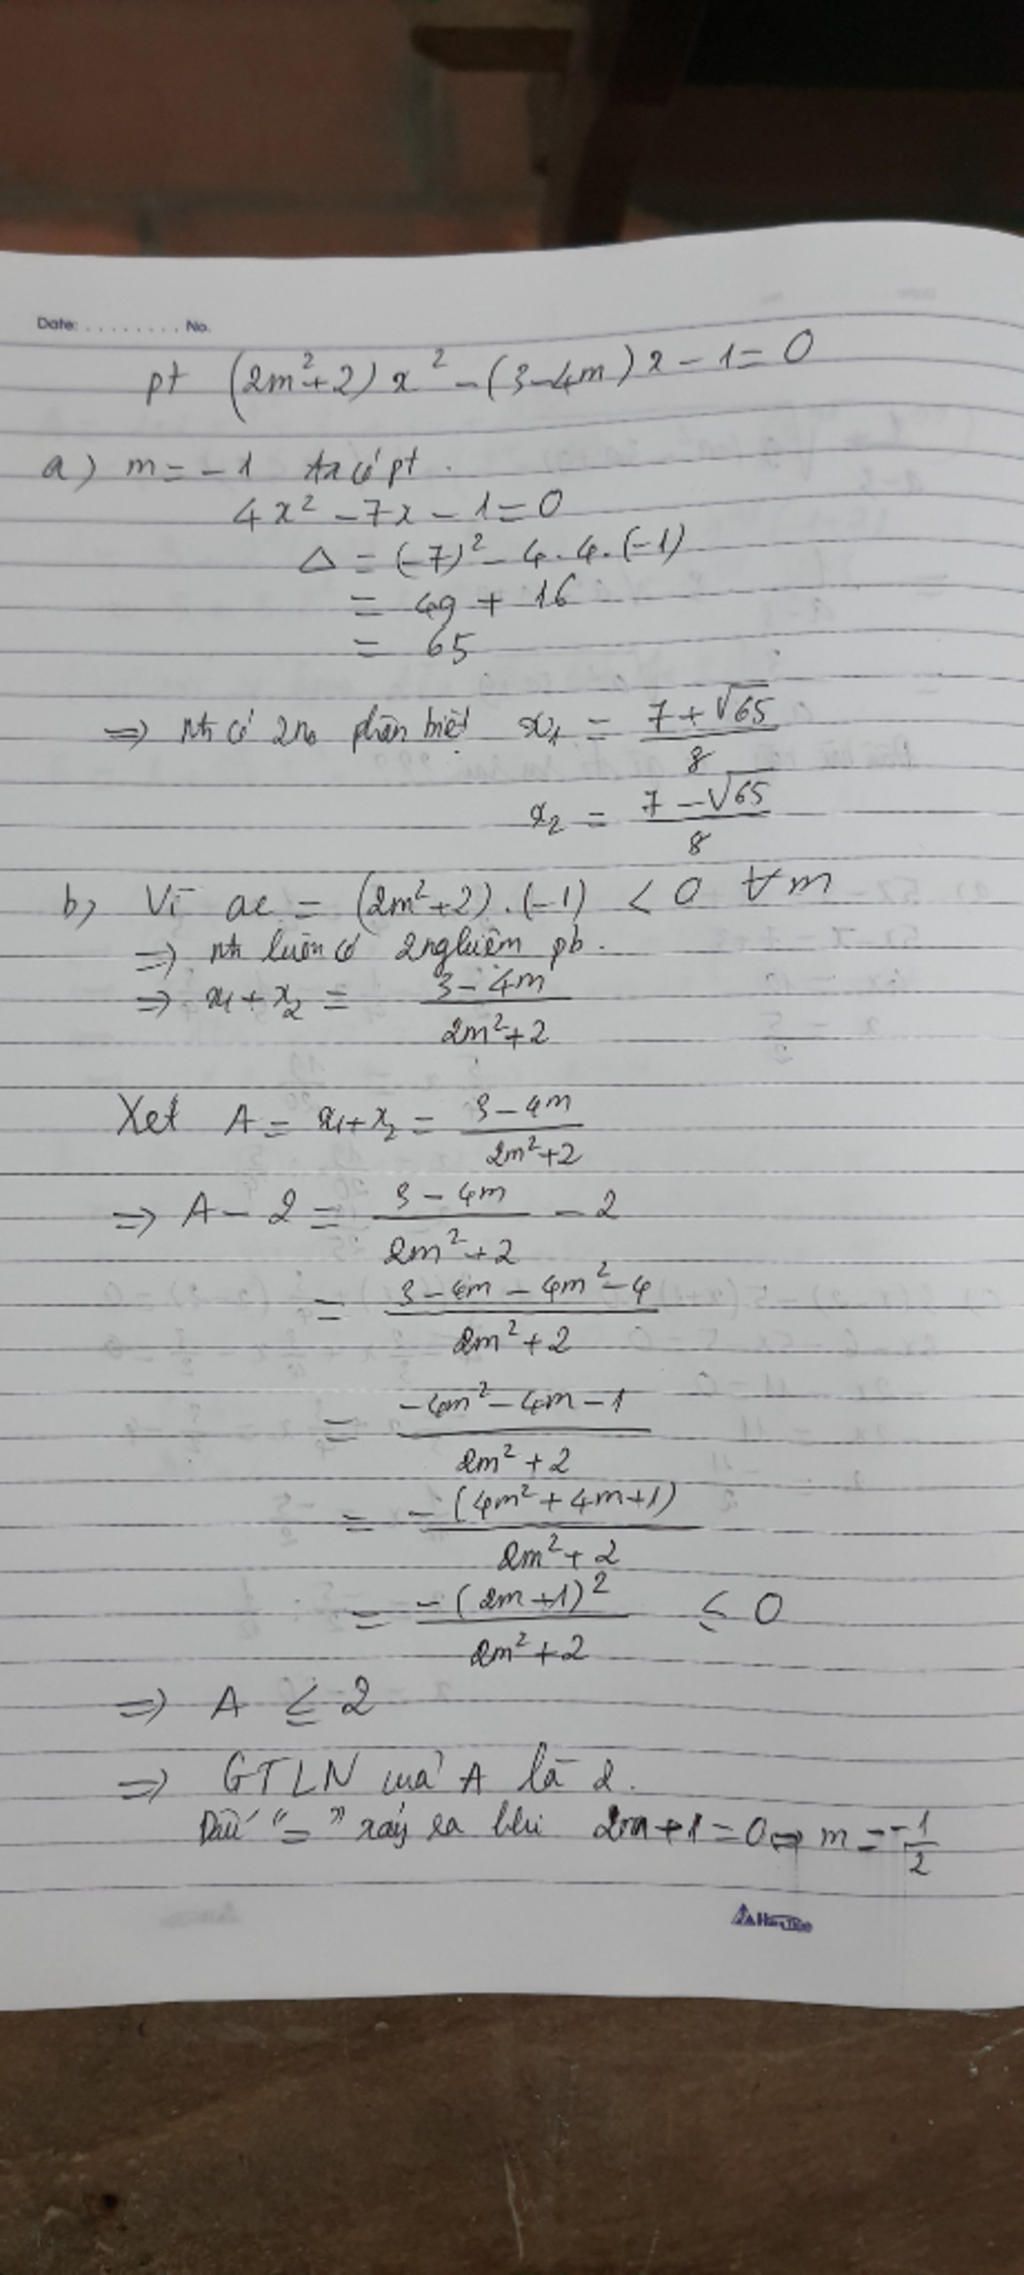 Date: ......... No.
pt (2m²+2)x² - (3-4m)x - 1 = 0
a) m = -1 ta có pt.
4x² - 7x - 1 = 0
Δ = (-7)² - 4.4.(-1)
= 49 + 16
= 65
=> pt có 2no phân biệt x₁ = (7+√65)/8
x₂ = (7-√65)/8
b) Vì ac = (2m²+2).(-1) < 0 ∀m
=> pt luôn có 2 nghiệm pb.
=> x₁+x₂ = (3-4m)/(2m²+2)
Xét A = x₁+x₂ = (3-4m)/(2m²+2)
=> A - 2 = (3-4m)/(2m²+2) - 2
= (3-4m-4m²-4)/(2m²+2)
= (-4m²-4m-1)/(2m²+2)
= -(4m²+4m+1)/(2m²+2)
= -(2m+1)²/(2m²+2) ≤ 0
=> A ≤ 2
=> GTLN của A là 2.
Dấu "=" xảy ra khi 2m+1=0 ⇔ m = -1/2